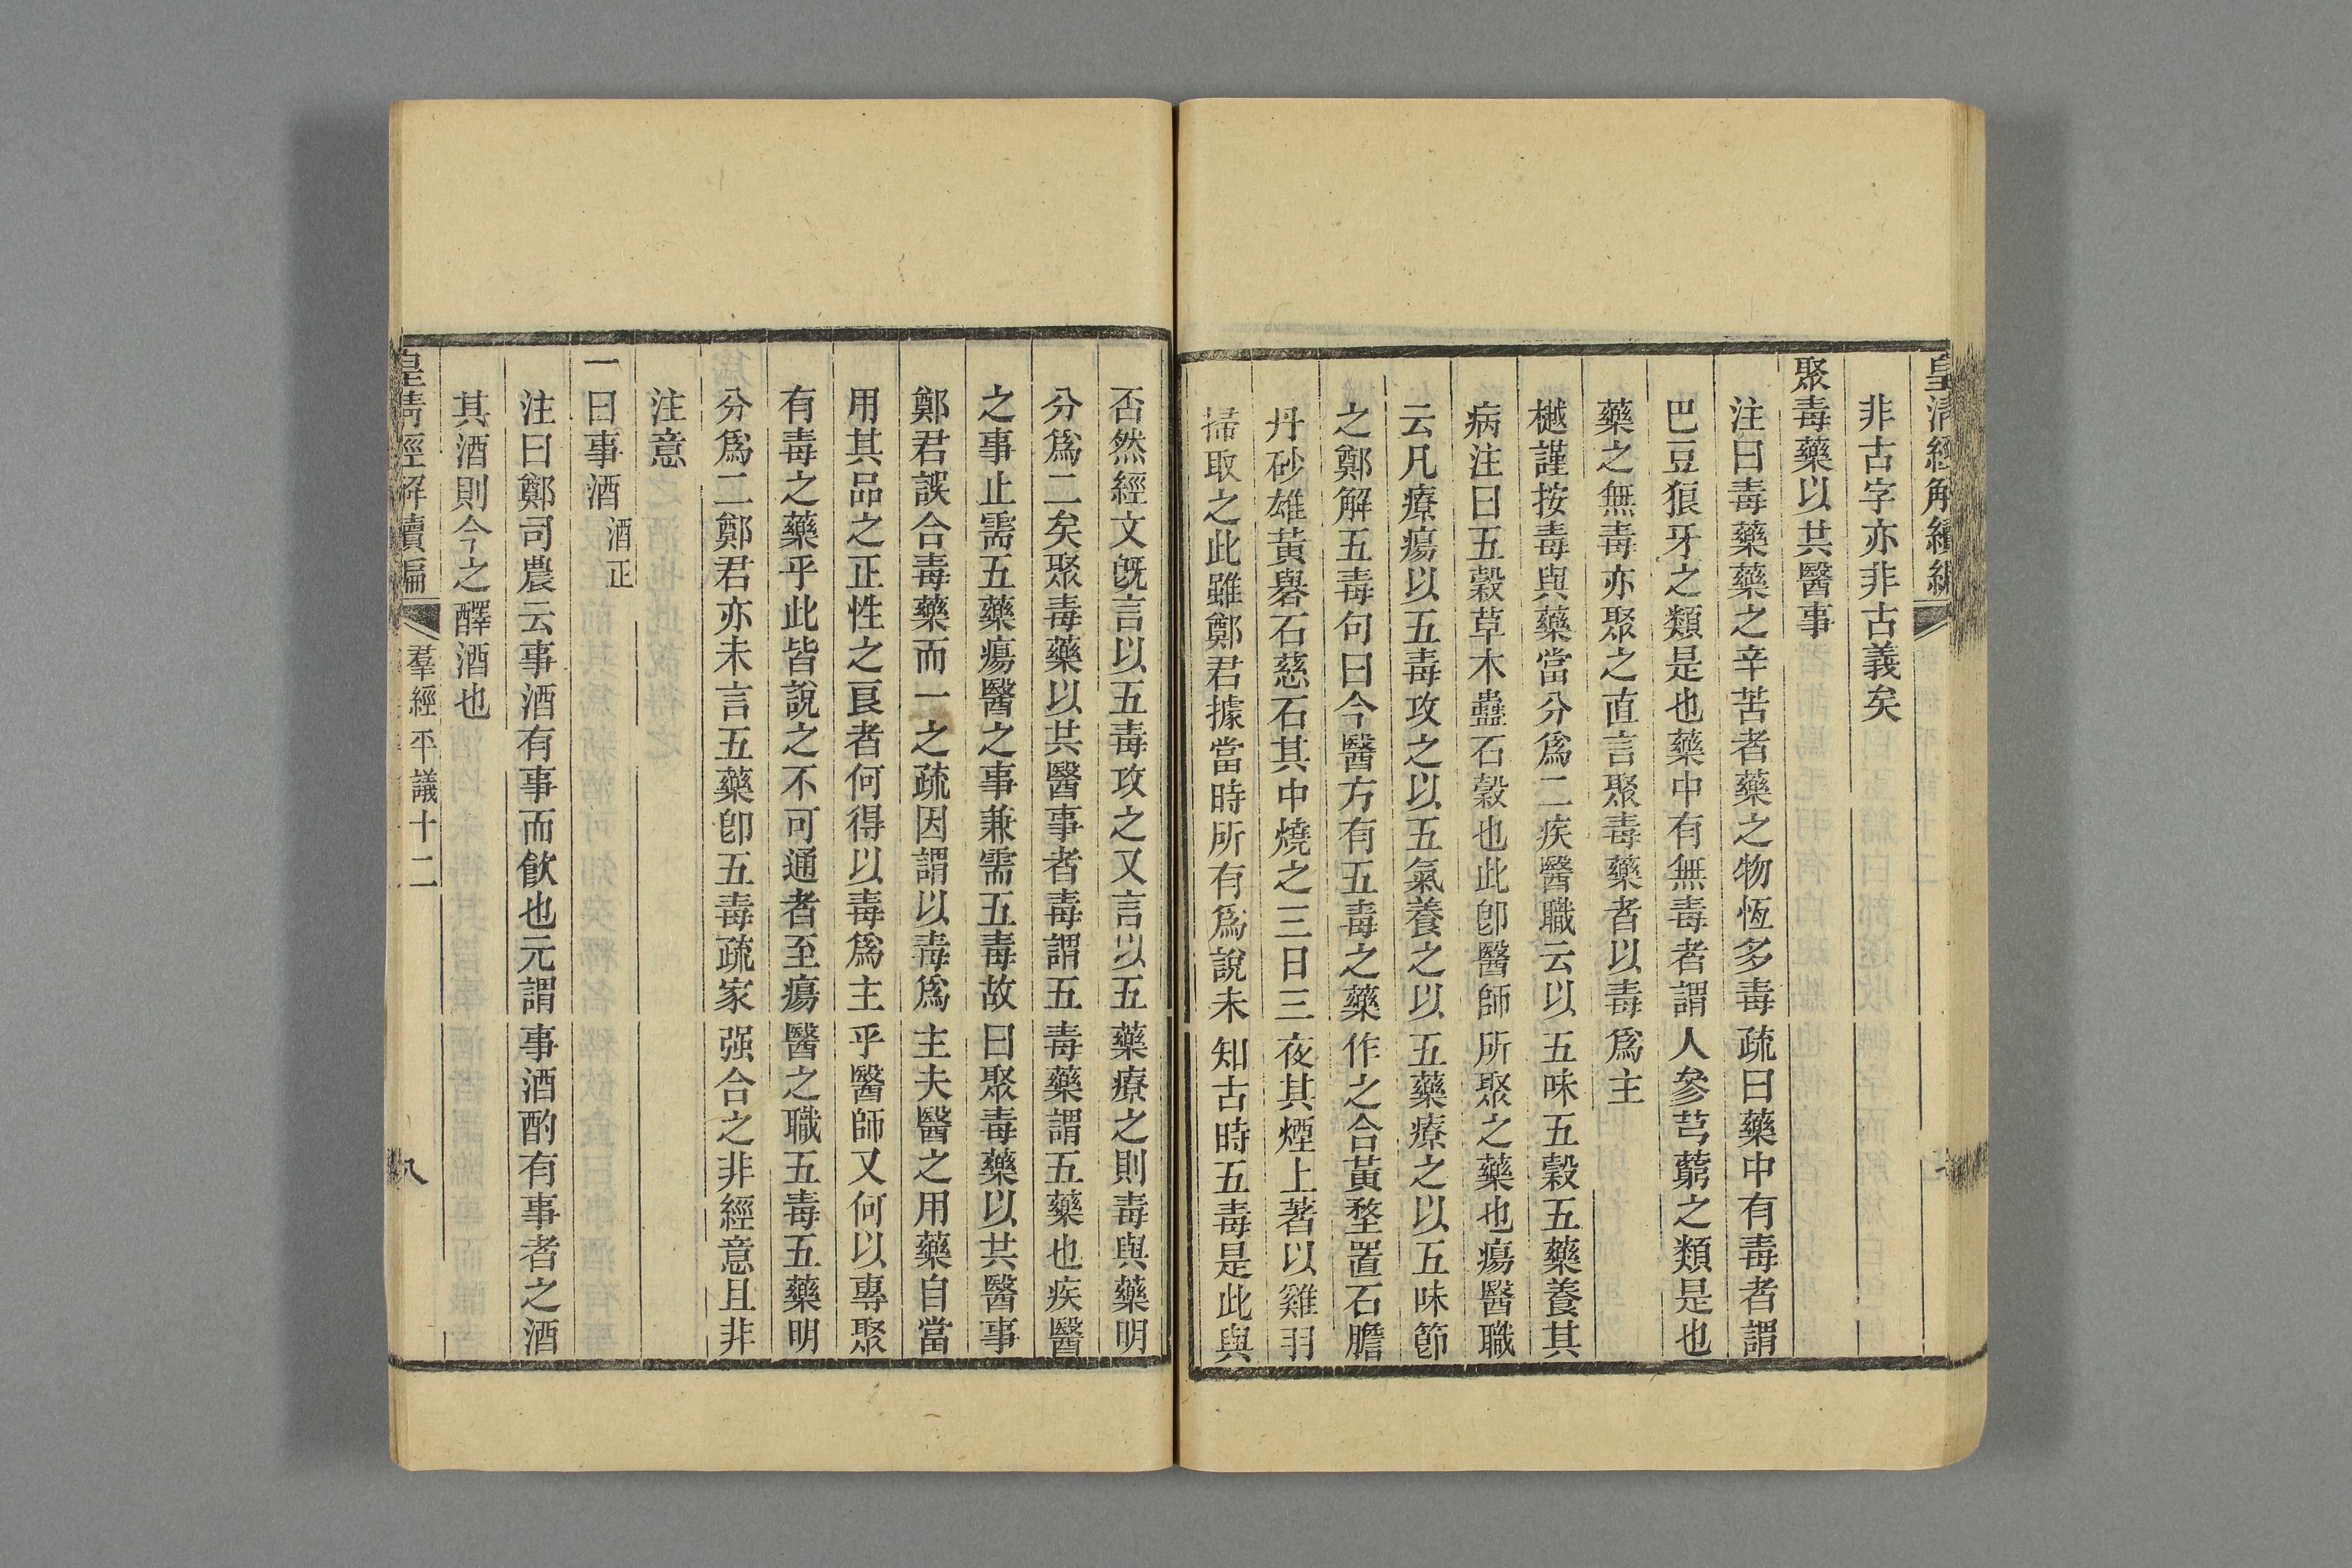 皇清經解續編
非古字亦非古義矣
聚毒藥以共醫事
注曰毒藥藥之辛苦者藥之物恆多毒疏曰藥中有毒者謂
巴豆狼牙之類是也藥中有無毒者謂人參芎藭之類是也
藥之無毒亦聚之直言聚毒藥者以毒爲主
樾謹按毒與藥當分爲二疾醫職云以五味五穀五藥養其
病注曰五穀草木蟲石穀也此卽醫師所聚之藥也瘍醫職
云凡療瘍以五毒攻之以五氣養之以五藥療之以五味節
之鄭解五毒句曰今醫方有五毒之藥作之合黃堥置石膽
丹砂雄黃礜石慈石其中燒之三日三夜其煙上著以雞羽
掃取之此雖鄭君據當時所有爲說未知古時五毒是此與
否然經文旣言以五毒攻之又言以五藥療之則毒與藥明
分爲二矣聚毒藥以共醫事者毒謂五毒藥謂五藥也疾醫
之事止需五藥瘍醫之事兼需五毒故曰聚毒藥以共醫事
鄭君誤合毒藥而一之疏因謂以毒爲主夫醫之用藥自當
用其品之正性之良者何得以毒爲主乎醫師又何以專聚
有毒之藥乎此皆說之不可通者至瘍醫之職五毒五藥明
分爲二鄭君亦未言五藥卽五毒疏家强合之非經意且非
注意
一曰事酒 酒正
注曰鄭司農云事酒有事而飮也元謂事酒酌有事者之酒
其酒則今之醳酒也
皇清經解續編 羣經平議十二 八